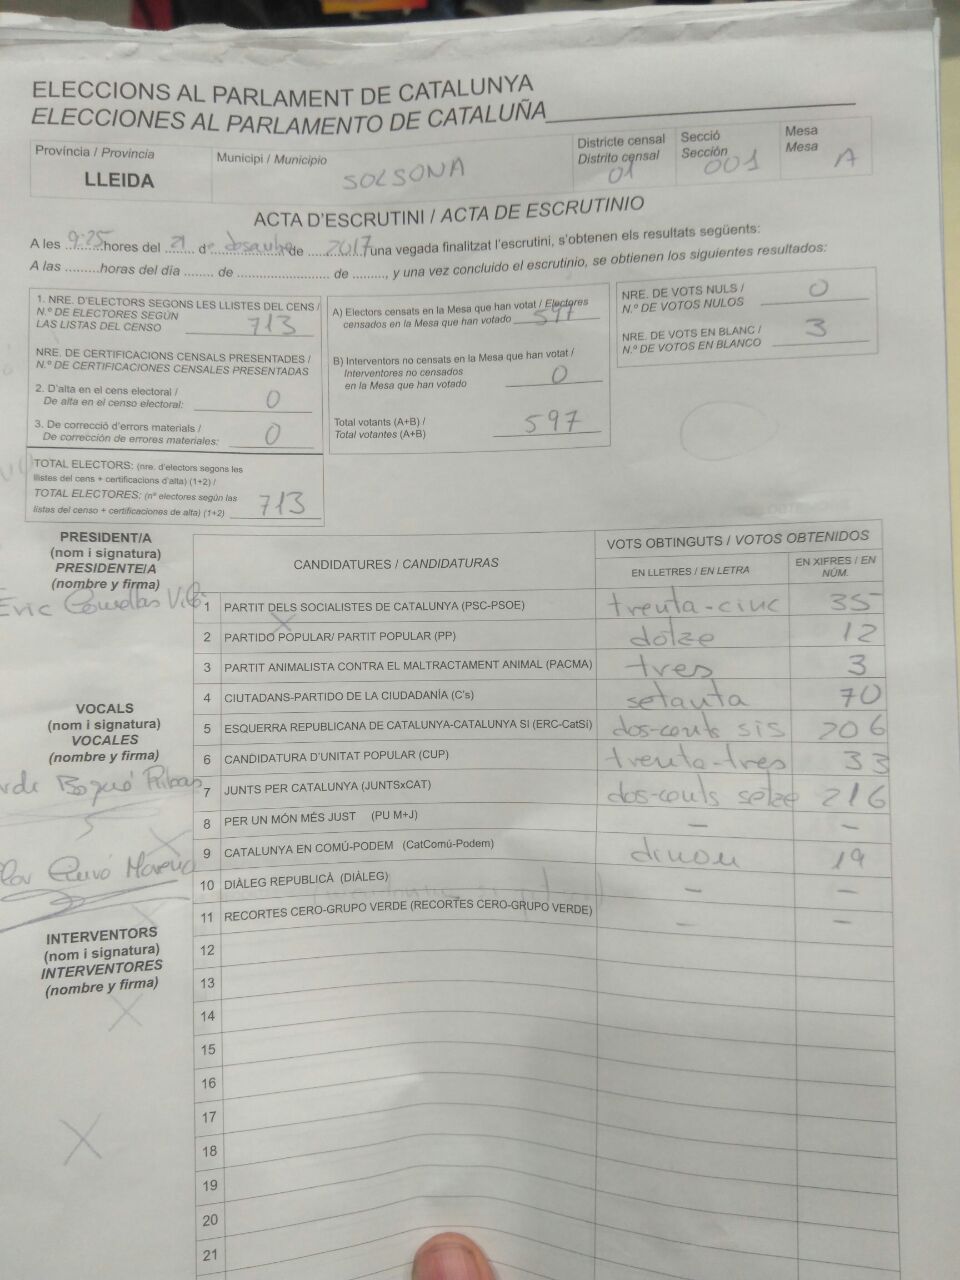 ELECCIONS AL PARLAMENT DE CATALUNYA
ELECCIONES AL PARLAMENTO DE CATALUÑA
Província / Provincia
LLEIDA
Municipi / Municipio
SOLSONA
Districte censal
Distrito censal
01
Secció
Sección
001
Mesa
Mesa
A
ACTA D'ESCRUTINI / ACTA DE ESCRUTINIO
A les 9:25 hores del 21 de desembre de 2017, una vegada finalitzat l'escrutini, s'obtenen els resultats següents:
A las .........horas del día ........ de ........................ de ........., y una vez concluido el escrutinio, se obtienen los siguientes resultados:
1. NRE. D'ELECTORS SEGONS LES LLISTES DEL CENS /
N.º DE ELECTORES SEGÚN
LAS LISTAS DEL CENSO 713
NRE. DE CERTIFICACIONS CENSALS PRESENTADES /
N.º DE CERTIFICACIONES CENSALES PRESENTADAS
2. D'alta en el cens electoral /
De alta en el censo electoral: 0
3. De correcció d'errors materials /
De corrección de errores materiales: 0
TOTAL ELECTORS: (nre. d'electors segons les
llistes del cens + certificacions d'alta) (1+2) /
TOTAL ELECTORES: (nº electores según las
listas del censo + certificaciones de alta) (1+2) 713
A) Electors censats en la Mesa que han votat / Electores
censados en la Mesa que han votado 597
B) Interventors no censats en la Mesa que han votat /
Interventores no censados
en la Mesa que han votado 0
Total votants (A+B) /
Total votantes (A+B) 597
NRE. DE VOTS NULS /
N.º DE VOTOS NULOS 0
NRE. DE VOTS EN BLANC /
N.º DE VOTOS EN BLANCO 3
PRESIDENT/A
(nom i signatura)
PRESIDENTE/A
(nombre y firma)
Eric
VOCALS
(nom i signatura)
VOCALES
(nombre y firma)
Ribas
Moreno
INTERVENTORS
(nom i signatura)
INTERVENTORES
(nombre y firma)
CANDIDATURES / CANDIDATURAS
VOTS OBTINGUTS / VOTOS OBTENIDOS
EN LLETRES / EN LETRA
EN XIFRES / EN
NÚM.
1 PARTIT DELS SOCIALISTES DE CATALUNYA (PSC-PSOE) trenta-cinc 35
2 PARTIDO POPULAR/ PARTIT POPULAR (PP) dotze 12
3 PARTIT ANIMALISTA CONTRA EL MALTRACTAMENT ANIMAL (PACMA) tres 3
4 CIUTADANS-PARTIDO DE LA CIUDADANÍA (C's) setanta 70
5 ESQUERRA REPUBLICANA DE CATALUNYA-CATALUNYA SI (ERC-CatSí) dos-cents sis 206
6 CANDIDATURA D'UNITAT POPULAR (CUP) trenta-tres 33
7 JUNTS PER CATALUNYA (JUNTSxCAT) dos-cents setze 216
8 PER UN MÓN MÉS JUST (PU M+J) — —
9 CATALUNYA EN COMÚ-PODEM (CatComú-Podem) dinou 19
10 DIÀLEG REPUBLICÀ (DIÀLEG) — —
11 RECORTES CERO-GRUPO VERDE (RECORTES CERO-GRUPO VERDE) — —
12
13
14
15
16
17
18
19
20
21